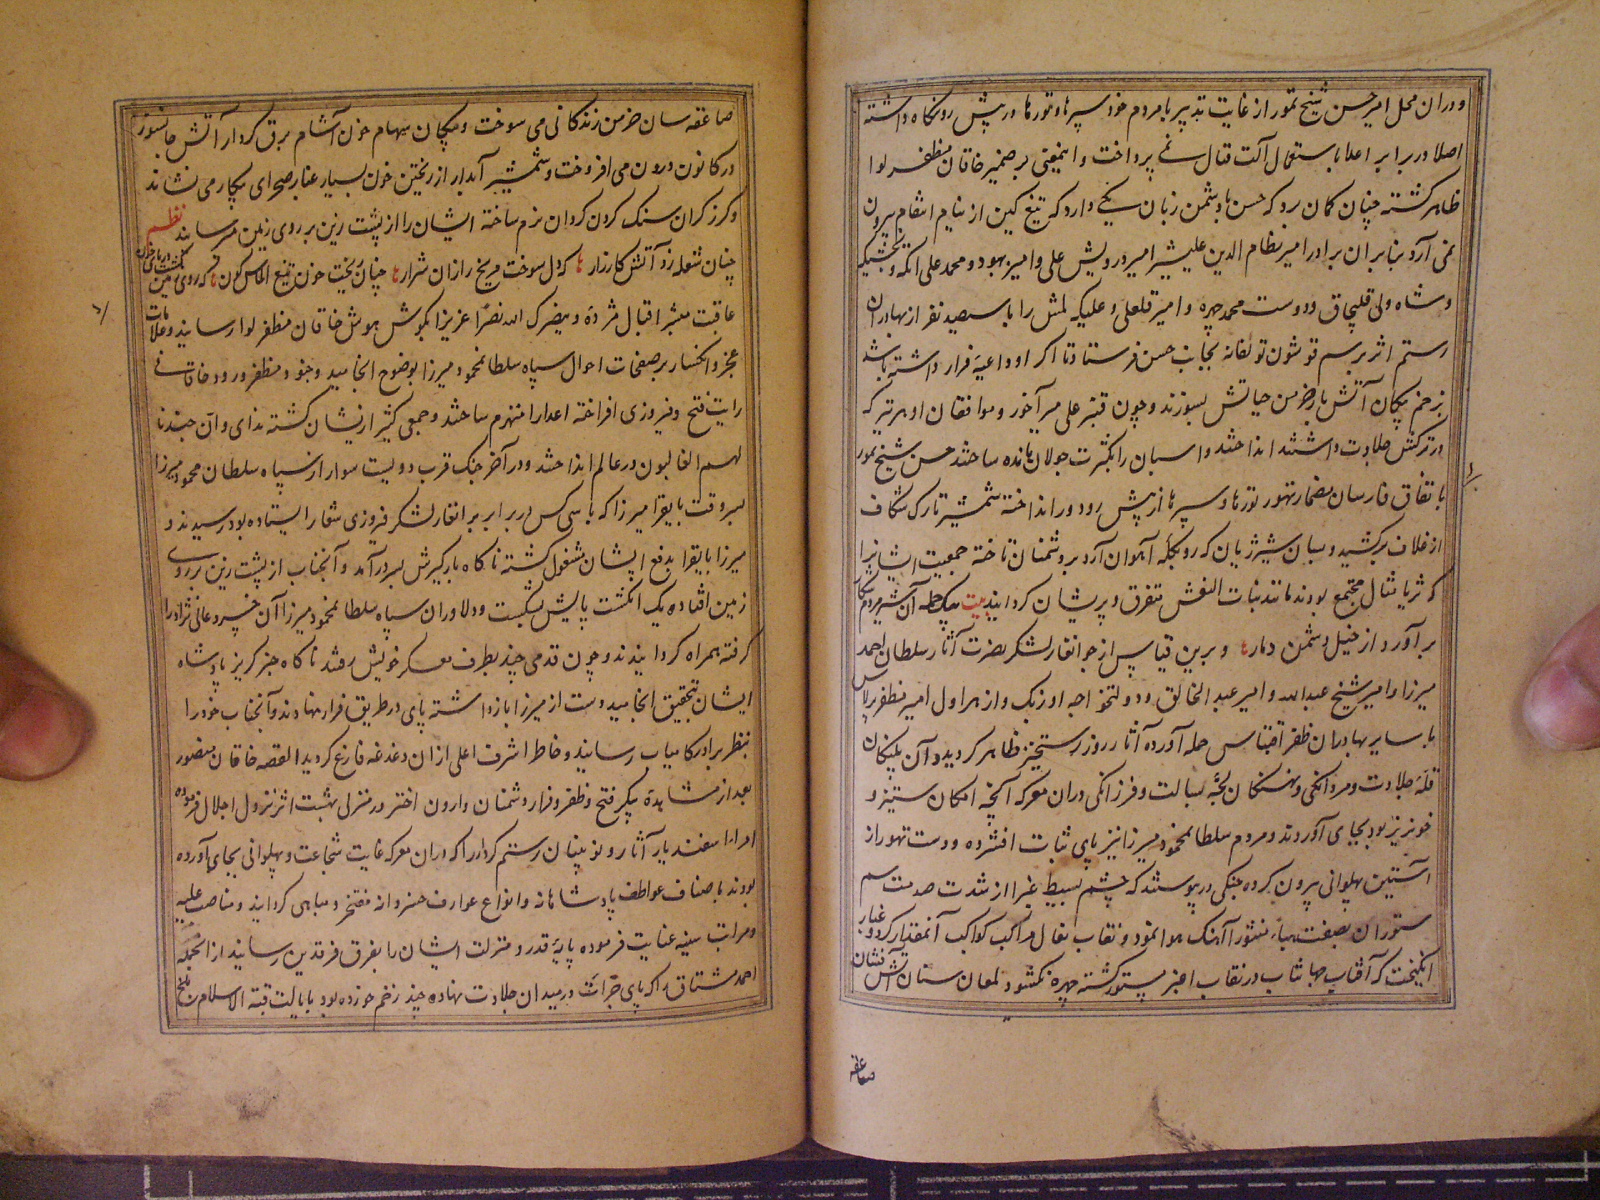 ودران محل امیر حسن شیخ تمور از غایت تدبیر با مردم خود سپرها و تورها در پیش رو نگاه داشته
اصلا در برابر اعدا باستعمال آلت قتال نمی پرداخت و اینمعنی بر ضمیر خاقان مظفر لوا
ظاهر گشته چنان گمان برد که حسن با دشمن زبان یکی دارد که تیغ کین از نیام انتقام بیرون
نمی آرد بنابر ان برادر امیر نظام الدین علیشیر امیر درویش علی و امیر بهبود و محمد علی اتکه و
و شاه ولی قلیچاق و دوست محمد چهره و امیر قلعلی و علیکه لمش را با سیصد نفر از بهادران
رستم اثر برسم قوشون توبلقانه بجانب حسن فرستاد تا اگر او داعیه فرار داشته باشد
بزخم پیکان آتش بار خرمن حیاتش بسوزند و چون قنبر علی میرآخور و موافقان او هر تیر که
در ترکش جلادت داشتند انداختند و اسبان را بکثرت جولان مانده ساختند حسن شیخ تمور
باتفاق فارسان مضمار تهور تورها و سپرها از پیش رو دور انداخته شمشیر تارک شکاف
از غلاف برکشید و بسان شیر ژیان که رو بگله آهوان آرد بر دشمنان تاخته جمعیت ایشانرا
که ثریا مثال مجتمع بودند مانند بنات النعش متفرق و پریشان گردانید بیت بیک حمله آن شیر مردم شکار
برآورد از خیل دشمن دمار و برین قیاس از جوانغار لشکر نصرت آثار سلطان احمد
میرزا و امیر شیخ عبدالله و امیر عبدالخالق و دولتخواجه اوزبک و از هراول امیر مظفر برلاس
با سایر بهادران ظفر اقتباس حمله آورده آثار روز رستخیز ظاهر گردید و آن پلنگان
قله جلادت و مردانگی و نهنگان لجه بسالت و فرزانگی دران معرکه آنچه امکان ستیز و
خونریز بود بجای آوردند و مردم سلطانمحمود میرزا نیز پای ثبات افشرده و دست تهور از
آستین پهلوانی بیرون کرده جنگی درپیوستند که چشم بسیط غبرا از شدت صدمت سم
ستوران بصفت هباء منثورا آهنک هوا نمود و نقاب نعال مراکب کواکب آنمقدار گرد و غبار
انگیخت که آفتاب جهانتاب در نقاب اغبر مستور گشته چهره نگشود لمعان سنان آتش فشان
صاعقه
صاعقه سان خرمن زندگانی می سوخت و پیکان سهام خون آشام برق کردار آتش جانسوز
در کانون درون می افروخت و شمشیر آبدار از ریختن خون بسیار غبار صحرای پیکار می نشاند
و گرز گران سنک گردن گردان نرم ساخته ایشان را از پشت زین بر روی زمین میرسانید نظم
چنان شعله زد آتش کارزار که دل سوخت مریخ را زان شرار چنان ریخت خون تیغ الماس گون که روی زمین گشت دریای خون
عاقبت مبشر اقبال مژده و ینصرک الله نصرا عزیزا بگوش هوش خاقان مظفر لوا رسانید و علامات
عجز و انکسار بر صفحات احوال سپاه سلطانمحمود میرزا بوضوح انجامید و جنود مظفر ورود خاقانی
رایت فتح و فیروزی افراخته اعدا را منهزم ساختند و جمعی کثیر ازیشان کشته ندای و ان جندنا
لهم الغالبون در عالم انداختند و در آخر جنک قرب دویست سوار از سپاه سلطان محمود میرزا
بسروقت بایقرا میرزا که با سی کس در برابر برانغار لشکر فیروزی شعار ایستاده بود رسیدند و
میرزا بایقرا بدفع ایشان مشغول گشته ناگاه بارگیرش بسر درآمد و آنجناب از پشت زین بر روی
زمین افتاده یک انگشت پایش بشکست و دلاوران سپاه سلطانمحمود میرزا آن خسرو عالی نژاد را
گرفته همراه گردانیدند و چون قدمی چند بطرف معسکر خویش رفتند ناگاه خبر گریز پادشاه
ایشان بتحقیق انجامید دست از میرزا بازداشته پای در طریق فرار نهادند و آنجناب خود را
بنظر برادر کامیاب رسانید و خاطر اشرف اعلی ازان دغدغه فارغ گردید القصه خاقان منصور
بعد از مشاهده پیکر فتح و ظفر و فرار دشمنان وارون اختر در منزلی بهشت اثر نزول اجلال فرموده
امراء اسفندیار آثار و نوینان رستم کردار را که دران معرکه غایت شجاعت و پهلوانی بجای آورده
بودند باصناف عواطف پادشاهانه و انواع عوارف خسروانه مفتخر و مباهی گردانید و مناصب علیه
و مراتب سنیه عنایت فرموده پایه قدر و منزلت ایشان را بفرق فرقدین رسانید از انجمله
احمد مشتاق را که پای جرات در میدان جلادت نهاده چند زخم خورده بود بایالت قبة الاسلام بلخ